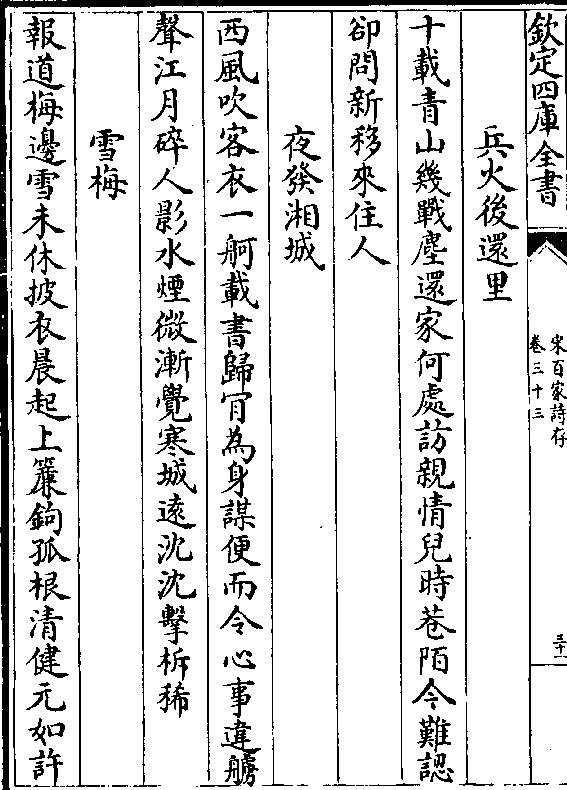 欽定四庫全書
宋百家詩存
卷三十三
三十一
兵火後還里
十載青山幾戰塵還家何處訪親情兒時巷陌今難認
卻問新移來住人
夜發湘城
西風吹客衣一舸載書歸肎為身謀便而令心事違艣
聲江月碎人影水煙微漸覺寒城遠沈沈擊柝稀
雪梅
報道梅邊雪未休披衣晨起上簾鉤孤根清健元如許